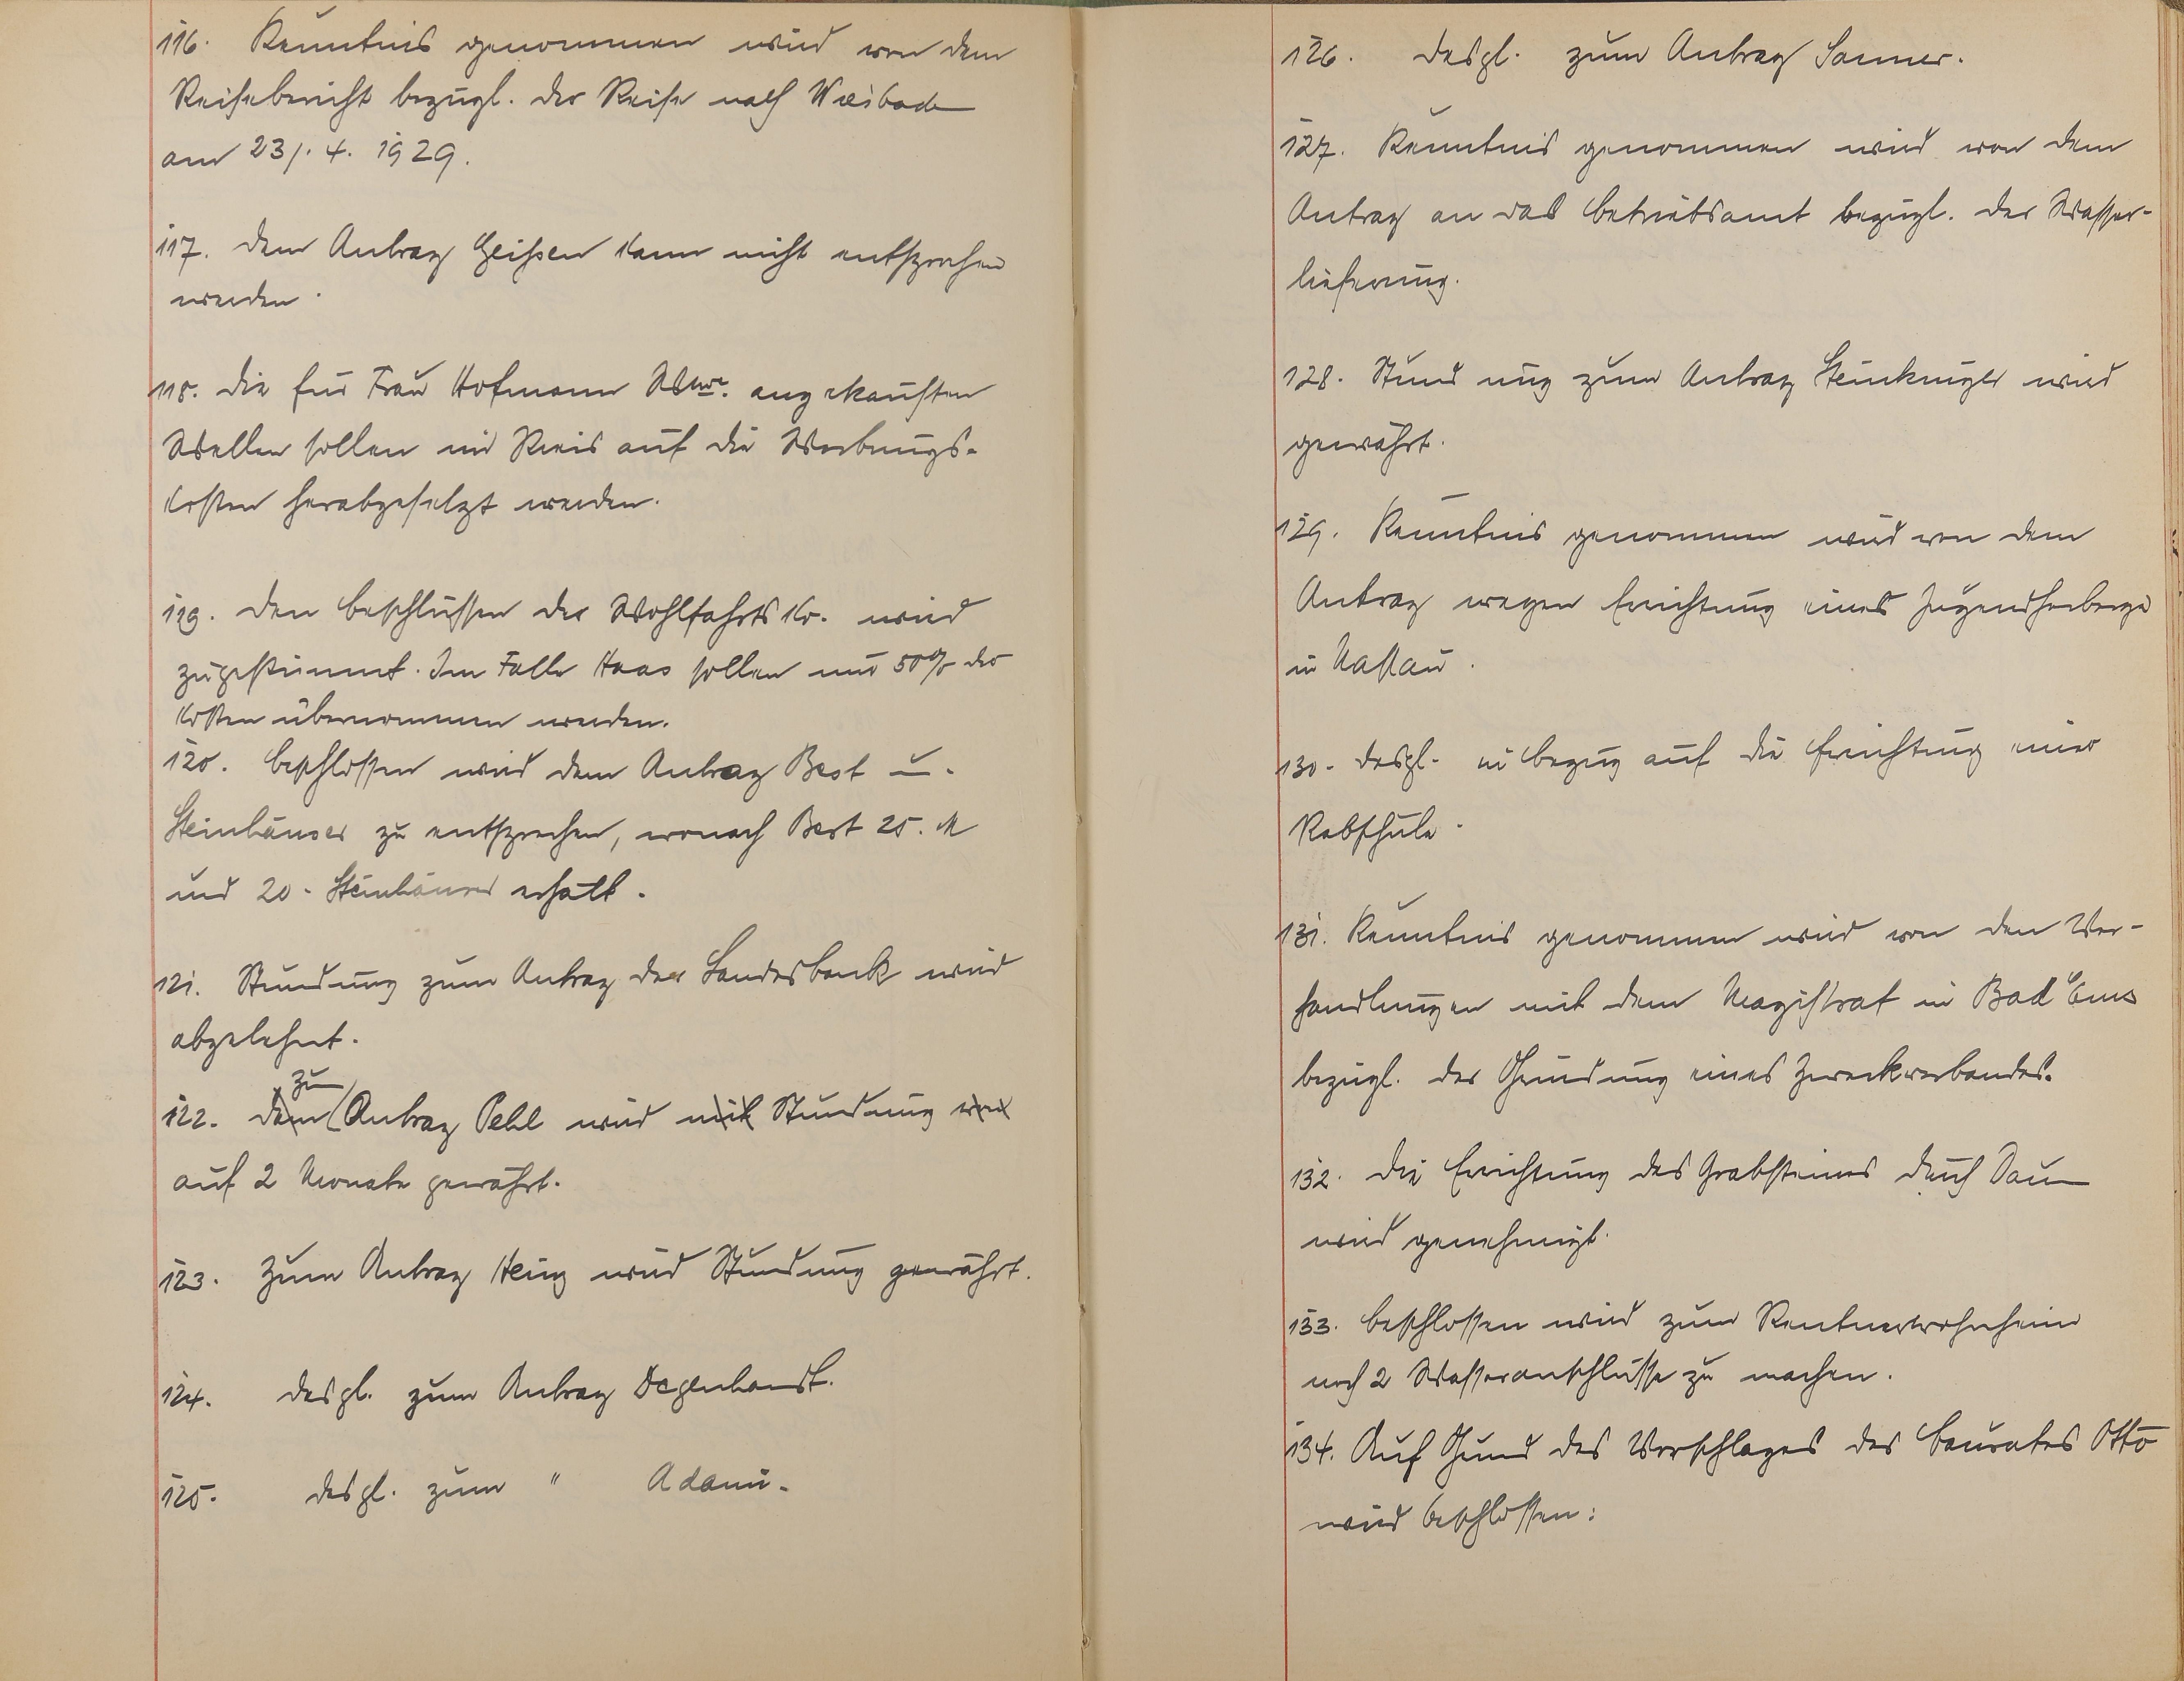 116. Kenntnis genommen wird von dem
Reisebericht bezügl. der Reise nach Wiesbaden
am 23/. 4. 1929.
117. Dem Antrag Geißen kann nicht entsprochen
werden.
118. Die für Frau Hofmann Wwe. angekauften
Wellen sollen im Preis auf die Werbungs-
kosten herabgesetzt werden.
119. Den Beschlüssen der Wohlfahrtsko. wird
zugestimmt. Im Falle Haas sollen nur 50% der
Kosten übernommen werden.
120. Beschlossen wird dem Antrag Best u.
Steinhäuser zu entsprechen, wonach Best 25. M
und 20.- Steinhäuser erhält.
121. Stundung zum Antrag der Landesbank wird
abgelehnt.
zu
122. Dem Antrag Pehl wird mit Stundung von
auf 2 Monate gewährt.
123. Zum Antrag Heinz wird Stundung gewährt.
124. desgl. zum Antrag Degenhardt.
125. desgl. zum " Adami.
126. desgl. zum Antrag Sanner.
127. Kenntnis genommen wird von dem
Antrag an das Betriebsamt bezügl. der Wasser-
lieferung.
128. Stundung zum Antrag Steinkrüger wird
gewährt.
129. Kenntnis genommen wird von dem
Antrag wegen Errichtung eines Jugendherberge
in Nassau.
130. desgl. in bezug auf die Errichtung einer
Rebschule.
131. Kenntnis genommen wird von den Ver-
handlungen mit dem Magistrat in Bad Ems
bezügl. der Gründung eines Zweckverbandes.
132. Die Errichtung des Grabsteines durch Daum
wird genehmigt.
133. Beschlossen wird zum Rentnerwohnheim
noch 2 Wasseranschlüsse zu machen.
134. Auf Grund des Vorschlages des Baurates Otto
wird beschlossen: